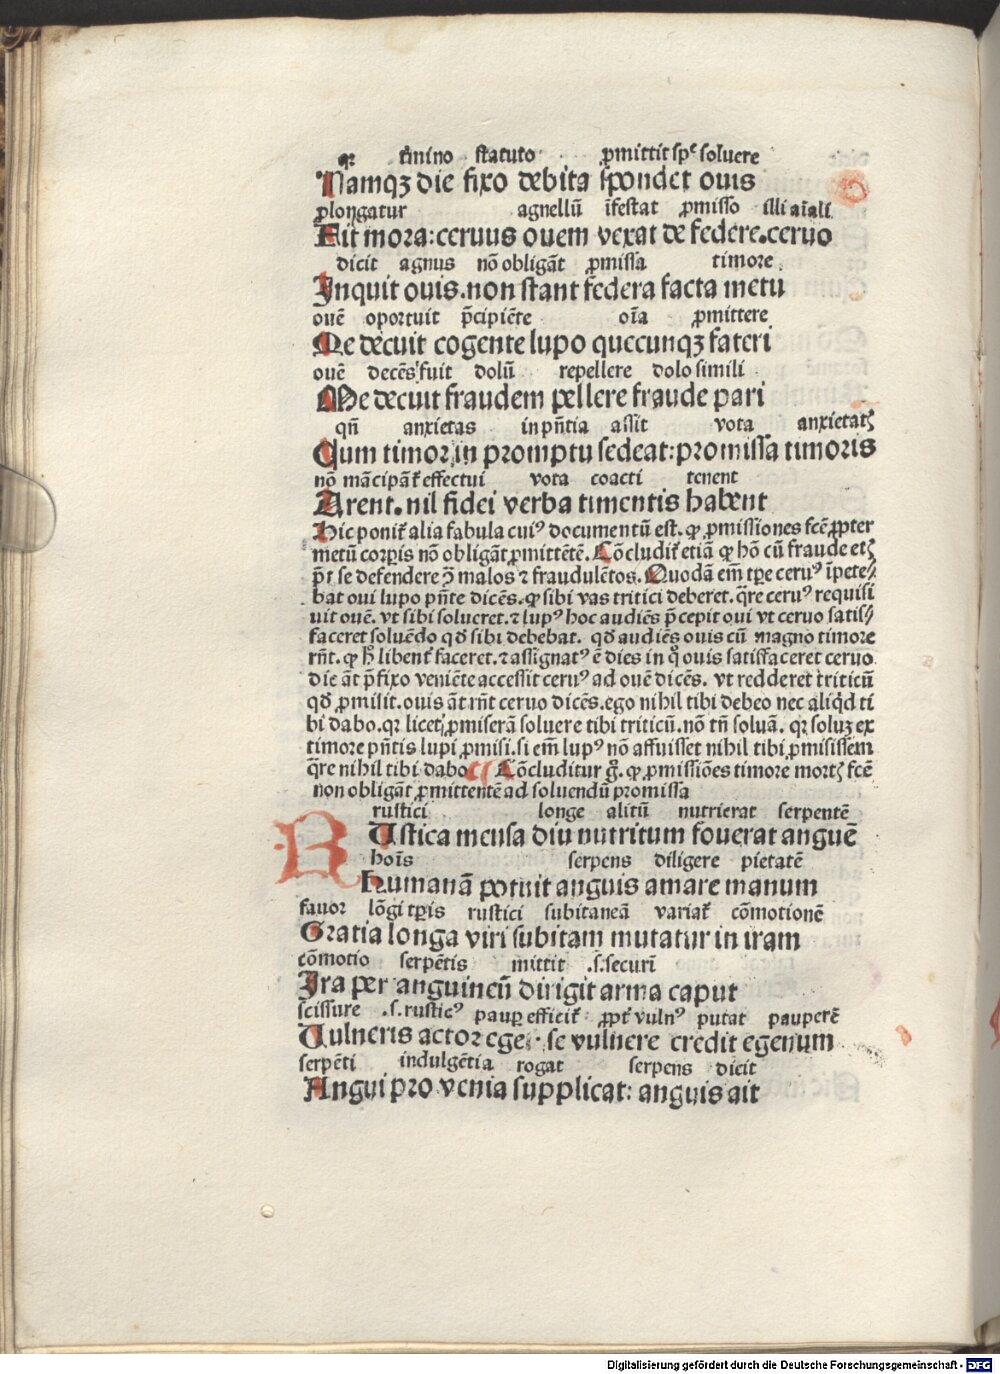 qꝛ tͤmino statuto ꝓmittit spͤ soluere
Namqꝫ die fixo debita spondet ouis
ꝓlongatur agnellū īfestat ꝓmisso illi aīali
Fit mora: ceruus ouem vexat de federe. ceruo
dicit agnus nō obligāt ꝓmissa timore.
Inquit ouis. non stant federa facta metu
ouē oportuit p̄cipiēte oīa ꝓmittere
Me decuit cogente lupo quecunqꝫ fateri
ouē decēs fuit dolū repellere dolo simili
Me decuit fraudem pellere fraude pari
qn̄ anxietas in pn̄tia assit vota anxietatꝭ
Cum timor in promptu sedeat: promissa timoris
nō mācipāt᷑ effectui vota coacti tenent
Arent. nil fidei verba timentis habent
Hic ponit᷑ alia fabula cuiꝰ documentū est. ꝙ ꝓmissiones fcē ꝓpter
metū corꝑis nō obligāt ꝓmittētē. Cōcludit᷑ etiā ꝙ hō cū fraude etꝭ
pt̄ se defendere ꝯ̄ malos ⁊ fraudulētos. Quodā em̄ tꝑe ceruꝰ īpete⸗
bat oui lupo pn̄te dicēs. ꝙ sibi vas tritici deberet. q̄re ceruꝰ requisi
uit ouē. vt sibi solueret. ⁊ lupꝰ hoc audiēs p̄cepit oui vt ceruo satis⸗
faceret soluēdo qd̄ sibi debebat. qd̄ audiēs ouis cū magno timore
rn̄t. ꝙ h̄ libent᷑ faceret. ⁊ assignatꝰ ē dies in q̊ ouis satisfaceret ceruo
die āt p̄fixo veniēte accessit ceruꝰ ad ouē dicēs. vt redderet triticū
qd̄ ꝓmisit. ouis āt rn̄t ceruo dicēs. ego nihil tibi debeo nec aliqd̄ ti
bi dabo. qꝛ licet ꝓmiserā soluere tibi triticū. nō tn̄ soluā. qꝛ soluꝫ ex
timore pn̄tis lupi ꝓmisi. si em̄ lupꝰ nō affuisset nihil tibi ꝓmisissem
q̄re nihil tibi dabo ¶ Cōcluditur g̊. ꝙ ꝓmissiōes timore mortꝭ fcē
non obligāt ꝓmittentē ad soluendū promissa
rustici longe alitū nutrierat serpentē
RUstica mensa diu nutritum fouerat anguē
hoīs serpens diligere pietatē
Humanā potuit anguis amare manum
fauor lōgi tꝑis rustici subitaneā variat᷑ cōmotionē
Gratia longa viri subitam mutatur in iram
cōmotio serpētis mittit .s. securī
Ira per anguineū dirigit arma caput
scissure .s. rusticꝰ pauꝑ efficit᷑ ꝓpt᷑ vulnꝰ putat pauperē
Uulneris actor eget. se vulnere credit egenum
serpēti indulgētia rogat serpens dicit
Angui pro venia supplicat: anguis ait
Digitalisierung gefördert durch die Deutsche Forschungsgemeinschaft - DFG